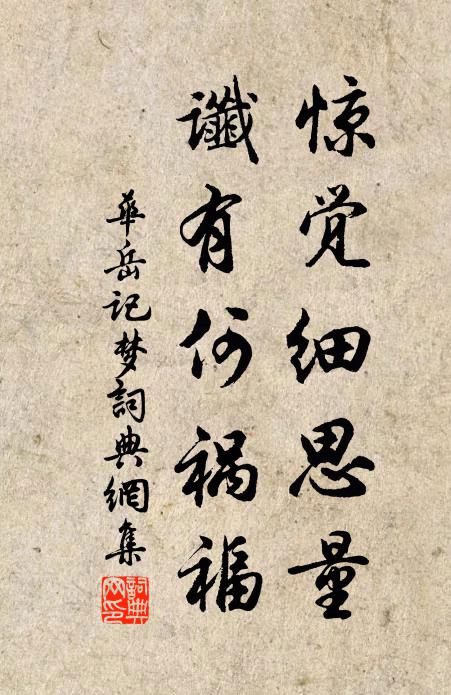 惊觉细思量
谶有何祸福
華岳记梦詞典網集
詞典网印